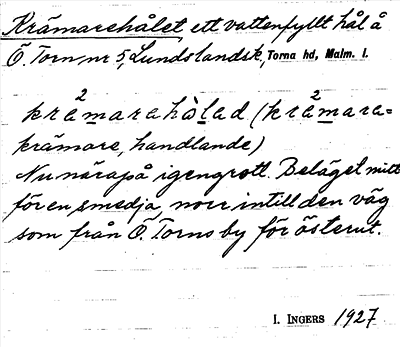 Krämarehålet, ett vattenfyllt hål å
Ö. Torn, nr 5, Lundslandsk., Torna hd, Malm. l.
krä²marahòlad (krä²mara=
krämare, handlande)
Nu närapå igengrott. Beläget mitt
för en smedja, norr intill den väg
som från Ö. Torns by för österut.
I. INGERS 1927